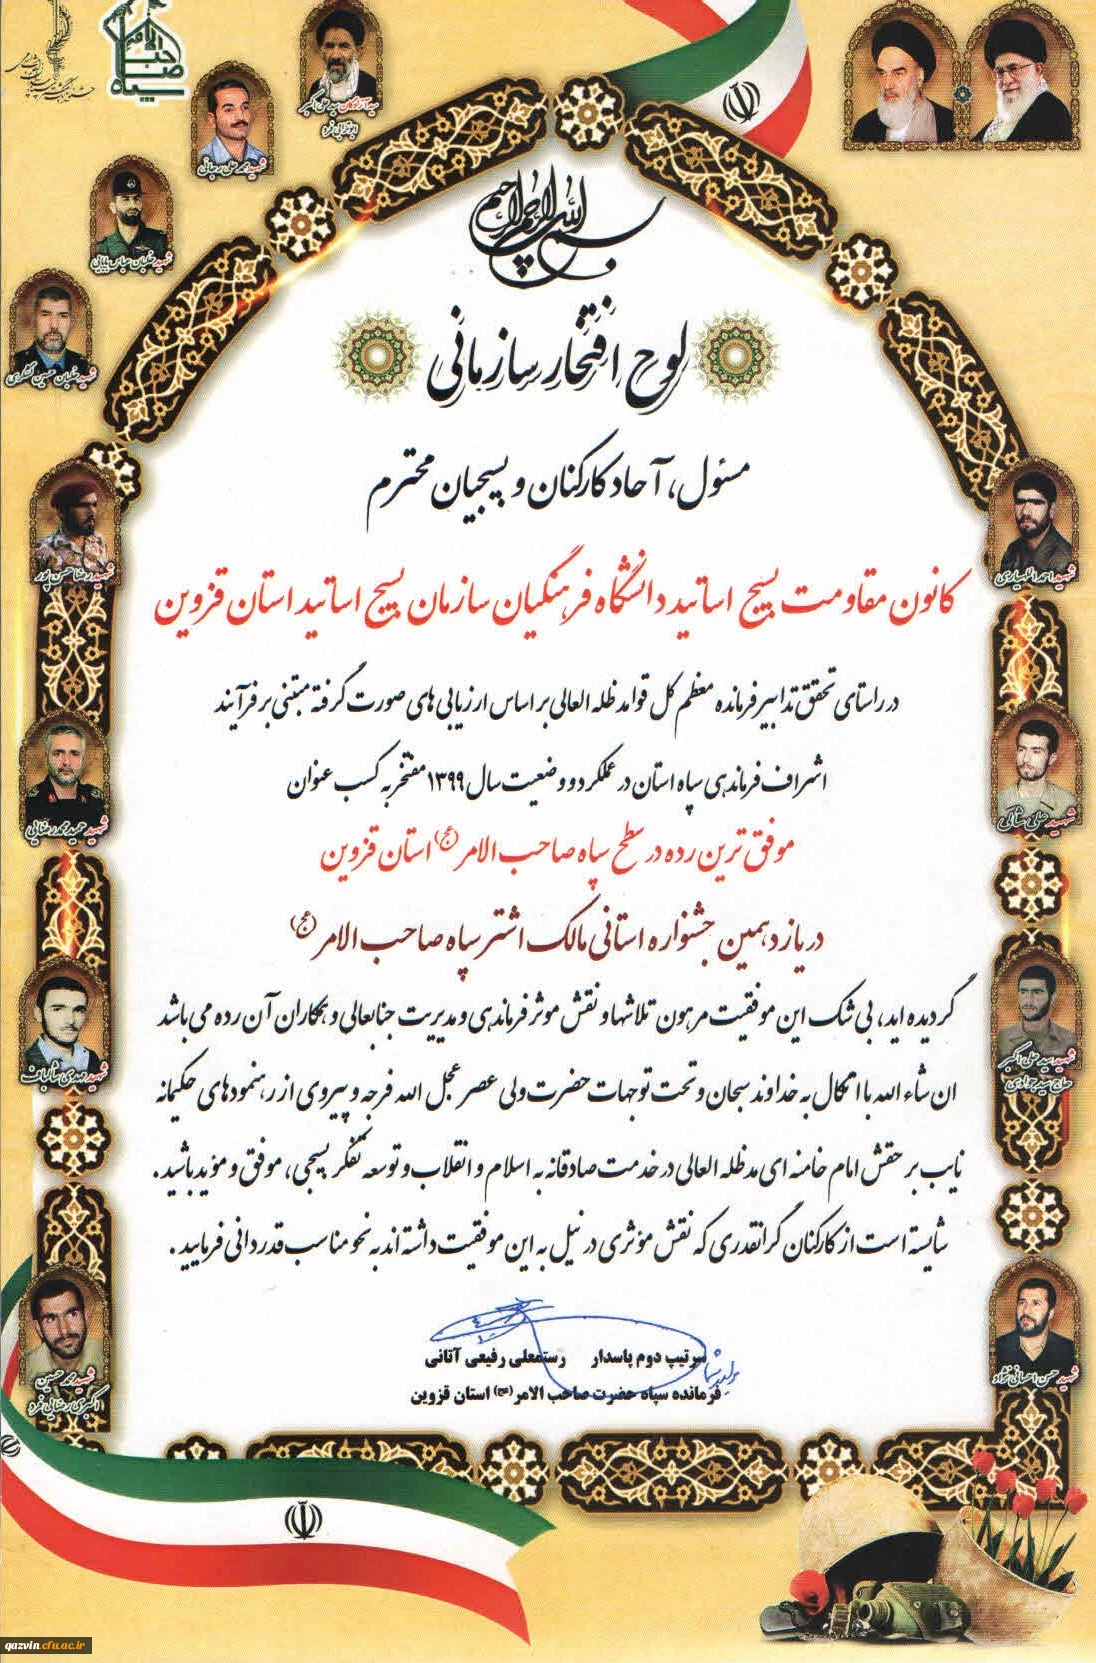 صاحب الامر
سپاه
سید آزادگان سید علی اکبر
ابوترابی فرد
شهید محمد علی رجائی
شهید خلبان عباس بابائی
شهید خلبان حسین لشگری
شهید رضا حسن پور
شهید حمید محمدرضایی
شهید مهدی شالباف
شهید محمد حسین
اکبری رضایی فرد
بسم الله الرحمن الرحیم
لوح افتخار سازمانی
مسئول، آحاد کارکنان و بسیجیان محترم
کانون مقاومت بسیج اساتید دانشگاه فرهنگیان سازمان بسیج اساتید استان قزوین
در راستای تحقق تدابیر فرمانده معظم کل قوا مدظله العالی بر اساس ارزیابی های صورت گرفته مبتنی بر فرآیند
اشراف فرماندهی سپاه استان در عملکرد و وضعیت سال ۱۳۹۹ مفتخر به کسب عنوان
موفق ترین رده در سطح سپاه صاحب الامر (عج) استان قزوین
در یازدهمین جشنواره استانی مالک اشتر سپاه صاحب الامر (عج)
گردیده اید، بی شک این موفقیت مرهون تلاشها و نقش موثر فرماندهی و مدیریت جنابعالی و همکاران آن رده می باشد
ان شاء الله با اتکال به خداوند سبحان و تحت توجهات حضرت ولی عصر عجل الله فرجه و پیروی از رهنمودهای حکیمانه
نایب بر حقش امام خامنه ای مدظله العالی در خدمت صادقانه به اسلام و انقلاب و توسعه تفکر بسیجی، موفق و مؤید باشید.
شایسته است از کارکنان گرانقدری که نقش مؤثری در نیل به این موفقیت داشته اند به نحو مناسب قدردانی فرمایید.
سرتیپ دوم پاسدار رستمعلی رفیعی آتانی
فرمانده سپاه حضرت صاحب الامر (عج) استان قزوین
شهید احمد اللهیاری
شهید سید علی اکبر
حاج سید جوادی
شهید حسن احسانی نژاد
qazvin.cfu.ac.ir